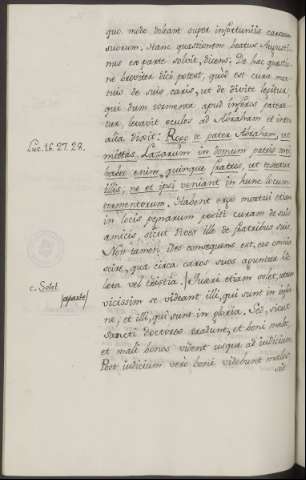 quo modo doleant super infortuniis carorum
suorum. Hanc quæstionem beatus Augusti-
nus ex parte solvit, dicens. De hac quæstio-
ne breviter dici potest, quid est cura mor-
tuis de suis caris, ut de divite legitur,
qui dum tormenta apud inferos patere-
tur, levavit oculos ad Abraham et inter
alia dixit: Rogo te pater Abraham, ut
Luc. 16. 27. 28.
mittas Lazarum in domum patris mei
habeo enim quinque fratres, ut testetur
illis, ne et ipsi veniant in hunc locum
tormentorum. Habent ergo mortui etiam
in locis pœnarum positi curam de suis
amicis, sicut Dives ille de fratribus suis.
Non tamen Des consequens est, eos omnia
scire, quæ circa caros suos aguntur
læta vel tristia. Quæri etiam solet, utrum
c. Solet
vicissim se videant illi, qui sunt in infer-
no, et illi, qui sunt in gloria. Sed, sicut
Sancti doctores tradunt, et boni malos,
et mali bonos vident usque ad judicium
Post judicium vero boni videbunt malos